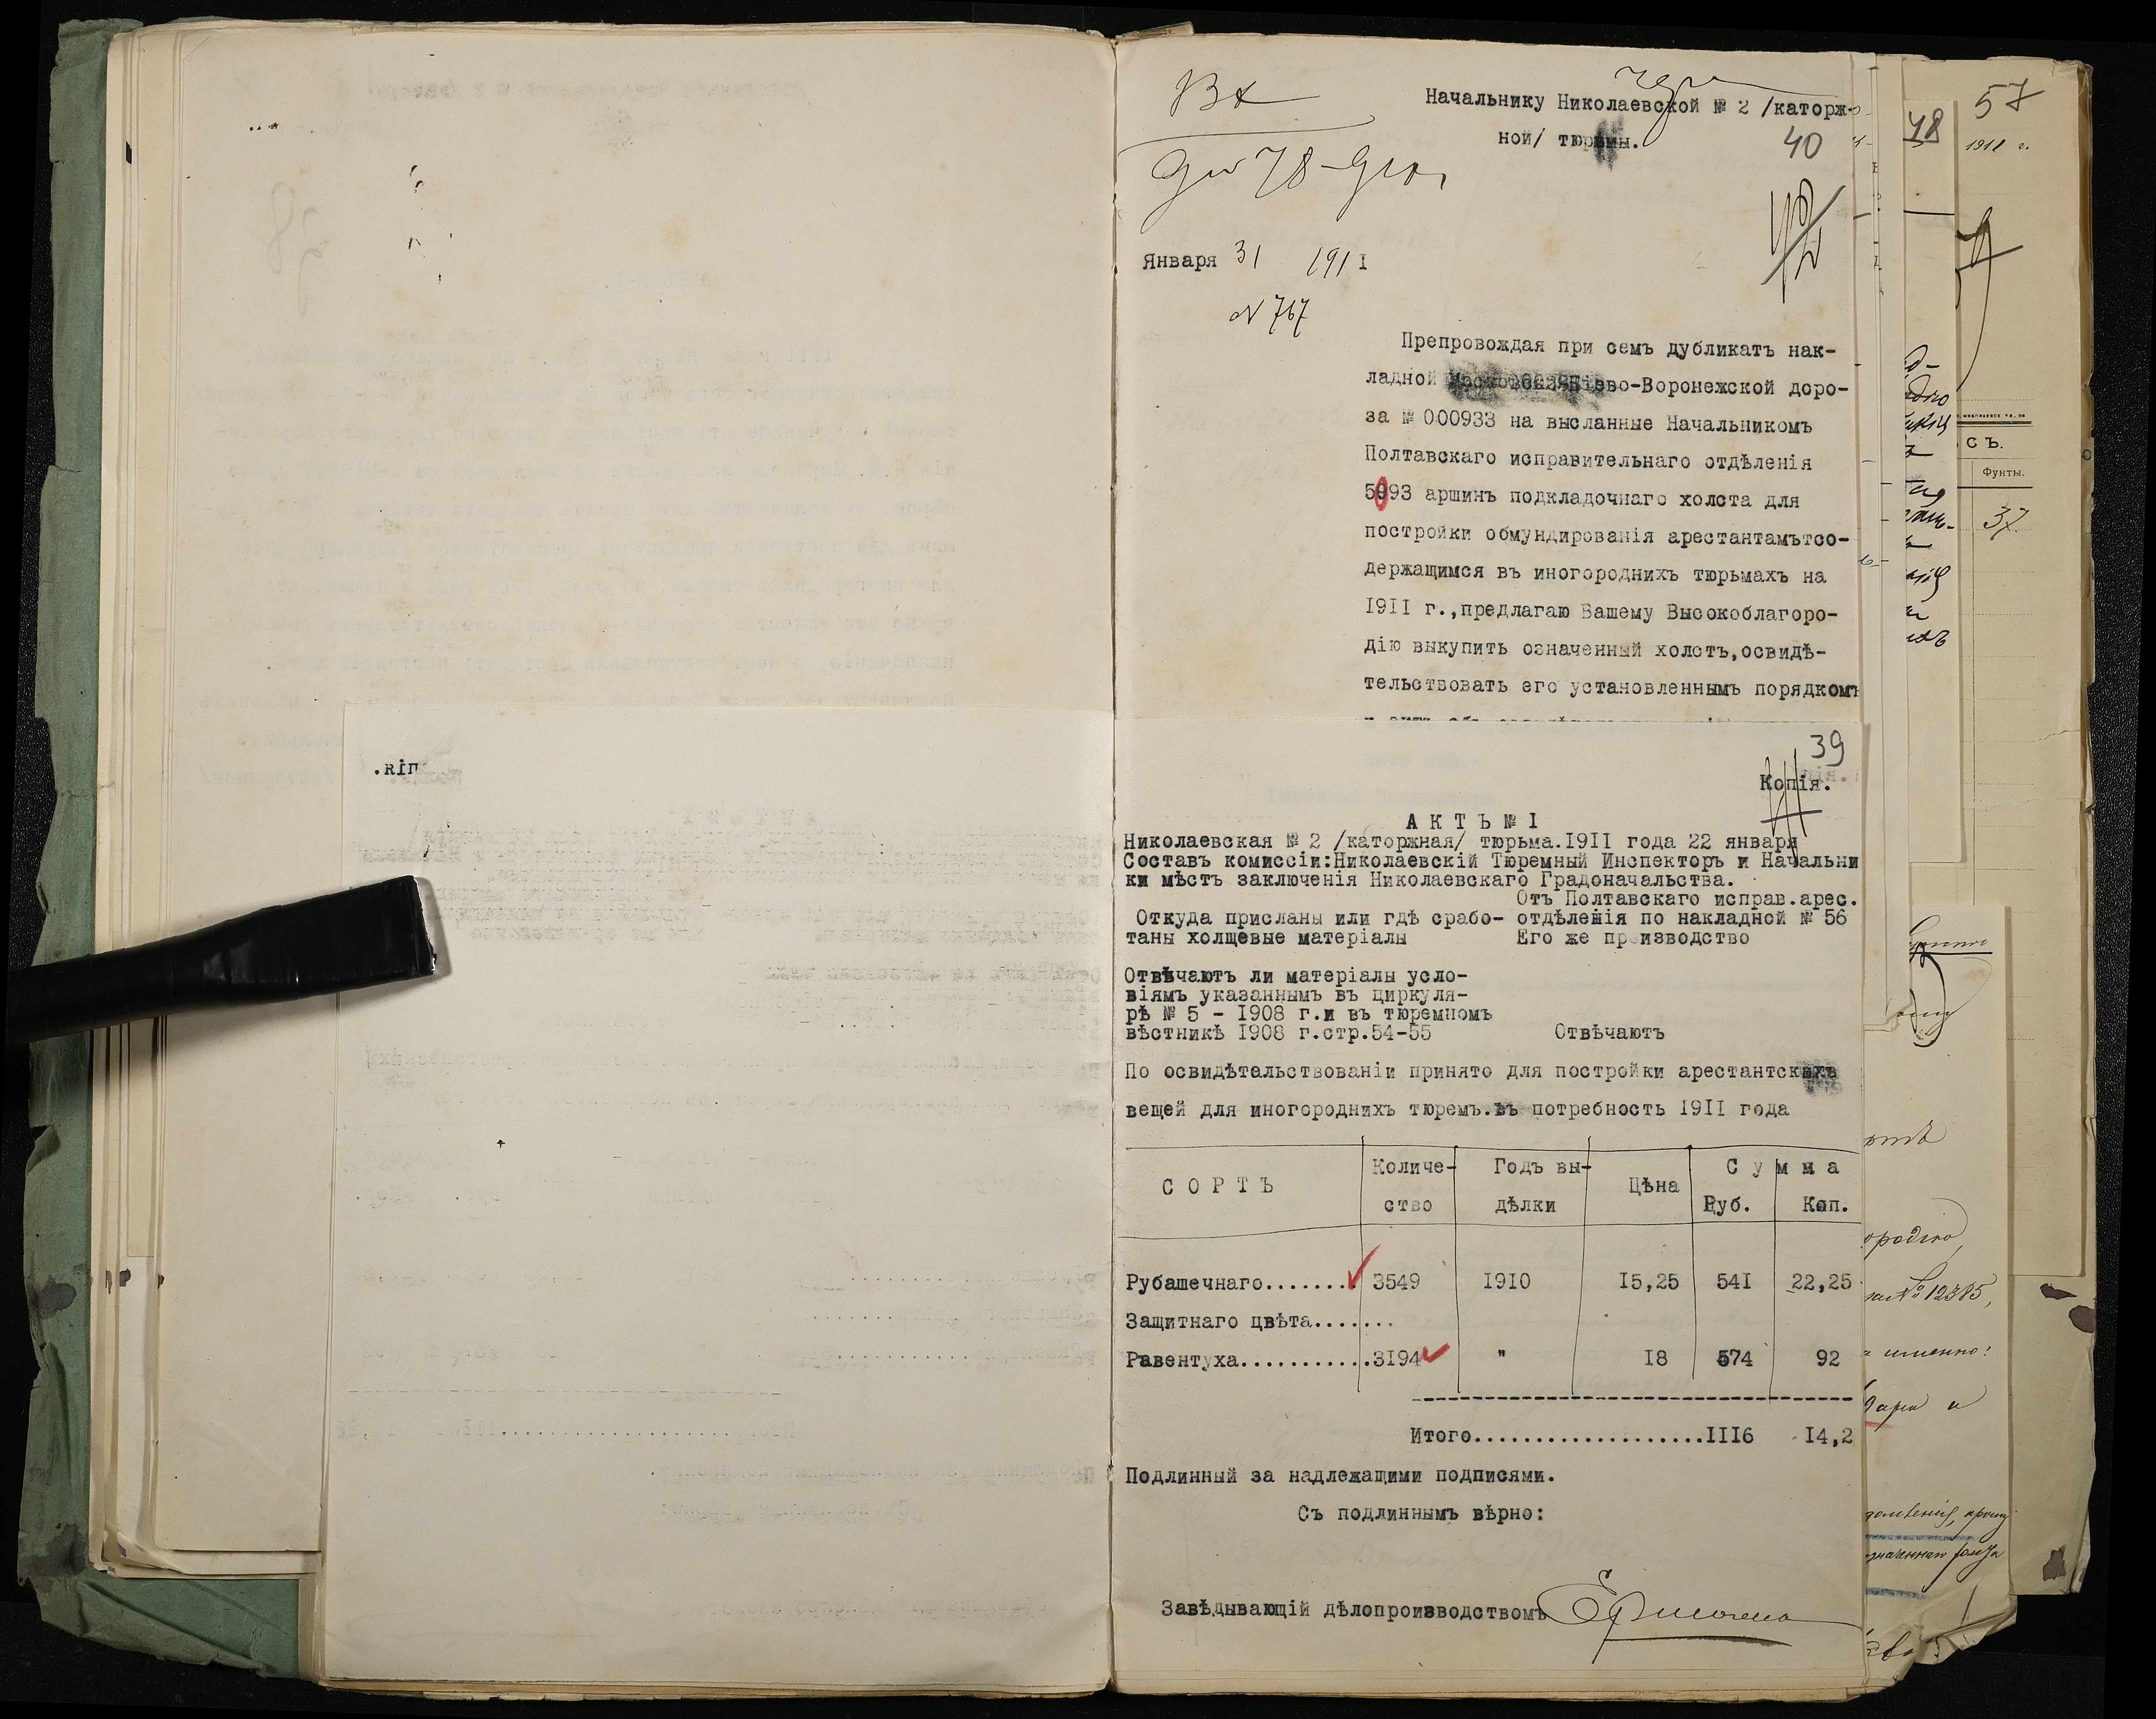 Начальнику Николаевской № 2 /каторж-
ной/ тюрьмы.
40
Вх
78
Января 31 1911
№ 767
Препровождая при семъ дубликатъ нак-
ладной Кіево-Воронежской доро-
за № 000933 на высланные Начальникомъ
Полтавскаго исправительнаго отдѣленія
5993 аршинъ подкладочнаго холста для
постройки обмундированія арестантамътсо-
держащимся въ иногороднихъ тюрьмахъ на
1911 г.,предлагаю Вашему Высокоблагоро-
дію выкупить означенный холстъ,освидѣ-
тельствовать его установленнымъ порядкомъ
39
Копія.
А К Т Ъ № 1
Николаевская № 2 /каторжная/ тюрьма.1911 года 22 января
Составъ комиссіи:Николаевскій Тюремный Инспекторъ и Начальни
ки мѣстъ заключенія Николаевскаго Градоначальства.
Отъ Полтавскаго исправ.арес.
Откуда присланы или гдѣ срабо- отдѣленія по накладной № 56
таны холщевые матеріалы Его же производство
Отвѣчаютъ ли матеріалы усло-
віямъ указаннымъ въ циркуля-
рѣ № 5 - 1908 г.и въ тюремномъ
вѣстникѣ 1908 г.стр.54-55 Отвѣчаютъ
По освидѣтальствованіи принято для постройки арестантскихъ
вещей для иногороднихъ тюремъ.въ потребность 1911 года
СОРТЪ Количе- Годъ вы- Цѣна Сумма
ство дѣлки Руб. Коп.
Рубашечнаго....... 3549 1910 15,25 541 22,25
Защитнаго цвѣта.......
Равентуха...........3194 " 18 574 92
Итого...................1116 14,2
Подлинный за надлежащими подписями.
Съ подлиннымъ вѣрно:
Завѣдывающій дѣлопроизводствомъ
48
57
1911 г.
СЪ.
Фунты.
37
№ 12385,
а именно: